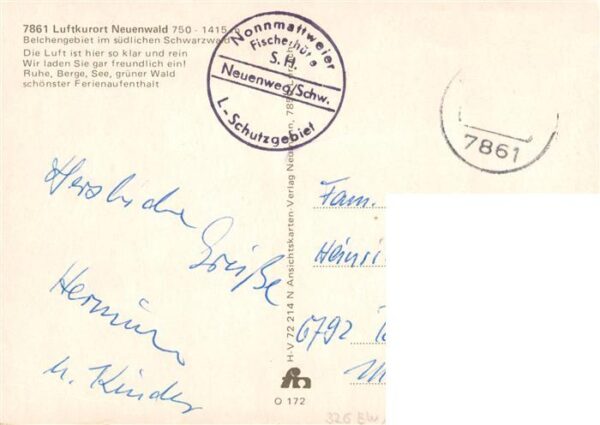 7861 Luftkurort Neuenwald 750 - 1415
Belchengebiet im südlichen Schwarzwald
Die Luft ist hier so klar und rein
Wir laden Sie gar freundlich ein!
Ruhe, Berge, See, grüner Wald
schönster Ferienaufenthalt
Nonnmattweier
Fischerhütte
S. H.
Neuenweg/Schw.
L-Schutzgebiet
7861
Herzliche
Grüße
u. Kinder
Fam.
Heinri
6792
H-V 72 214 N Ansichtskarten-Verlag
fm
O 172